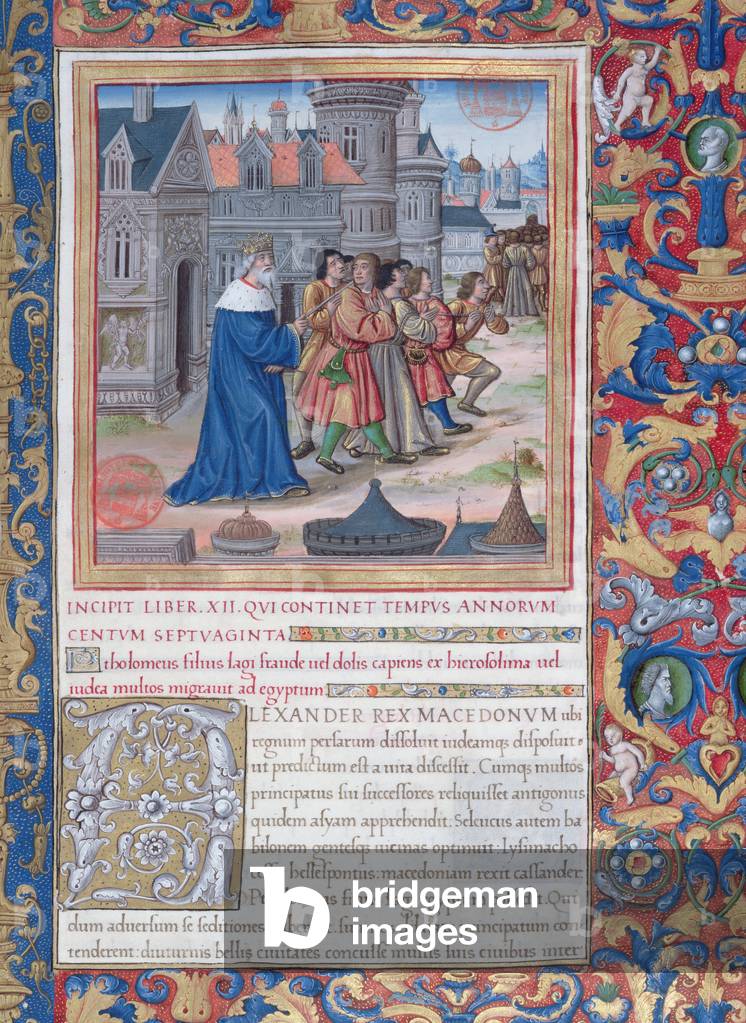 INCIPIT LIBER. XII. QVI CONTINET TEMPVS ANNORVM
CENTVM SEPTVAGINTA
Ptholomeus filius lagi fraude uel dolis capiens ex hierosolima uel
iudea multos migrauit ad egyptum
ALEXANDER REX MACEDONVM ubi
regnum persarum dissoluit iudeamqs disposuit
ut predictum est a uita discessit. Cumqs multos
principatus sui successores reliquisset antigonus
quidem asyam apprehendit. Seleucus autem ba
bilonem gentesqs uicinas optinuit: lysimacho
hellespontus: macedoniam rexit cassander
Qui
dum aduersum se seditiones principatum con
tenderent: diuturnis bellis ciuitates concusse multis suis ciuibus inter
bridgeman
images